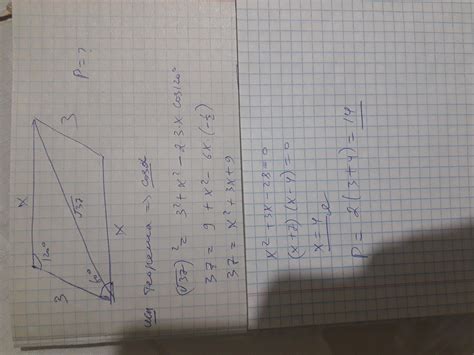 x
3
120°
√37
3
60°
x
P = ?
Теорема => cosα
(√37)² = 3² + x² - 2·3x cos120°
37 = 9 + x² - 6x (-½)
37 = x² + 3x + 9
x² + 3x - 28 = 0
(x+7) (x-4) = 0
x = 4
P = 2(3+4) = 14